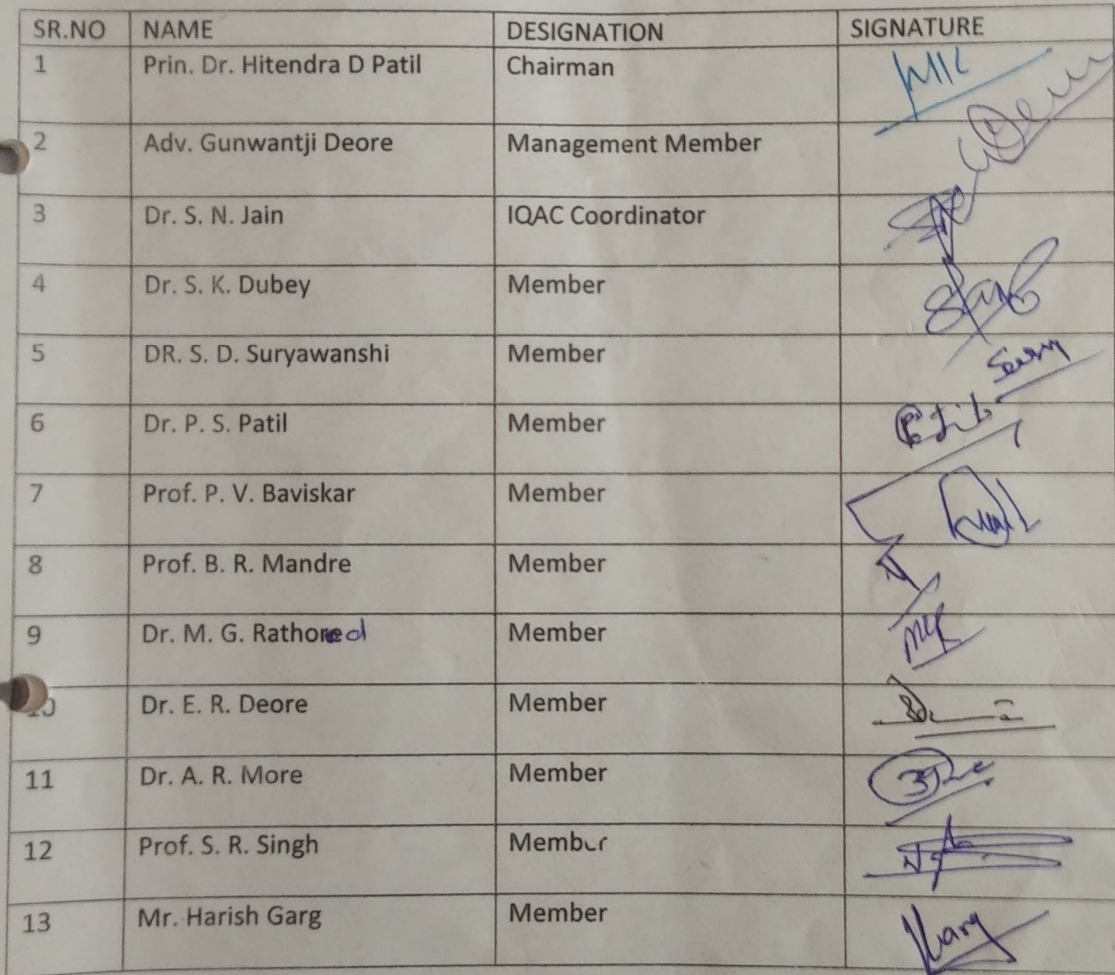 SR.NO NAME DESIGNATION SIGNATURE
1 Prin. Dr. Hitendra D Patil Chairman
2 Adv. Gunwantji Deore Management Member
3 Dr. S. N. Jain IQAC Coordinator
4 Dr. S. K. Dubey Member
5 DR. S. D. Suryawanshi Member
6 Dr. P. S. Patil Member
7 Prof. P. V. Baviskar Member
8 Prof. B. R. Mandre Member
9 Dr. M. G. Rathod Member
10 Dr. E. R. Deore Member
11 Dr. A. R. More Member
12 Prof. S. R. Singh Member
13 Mr. Harish Garg Member